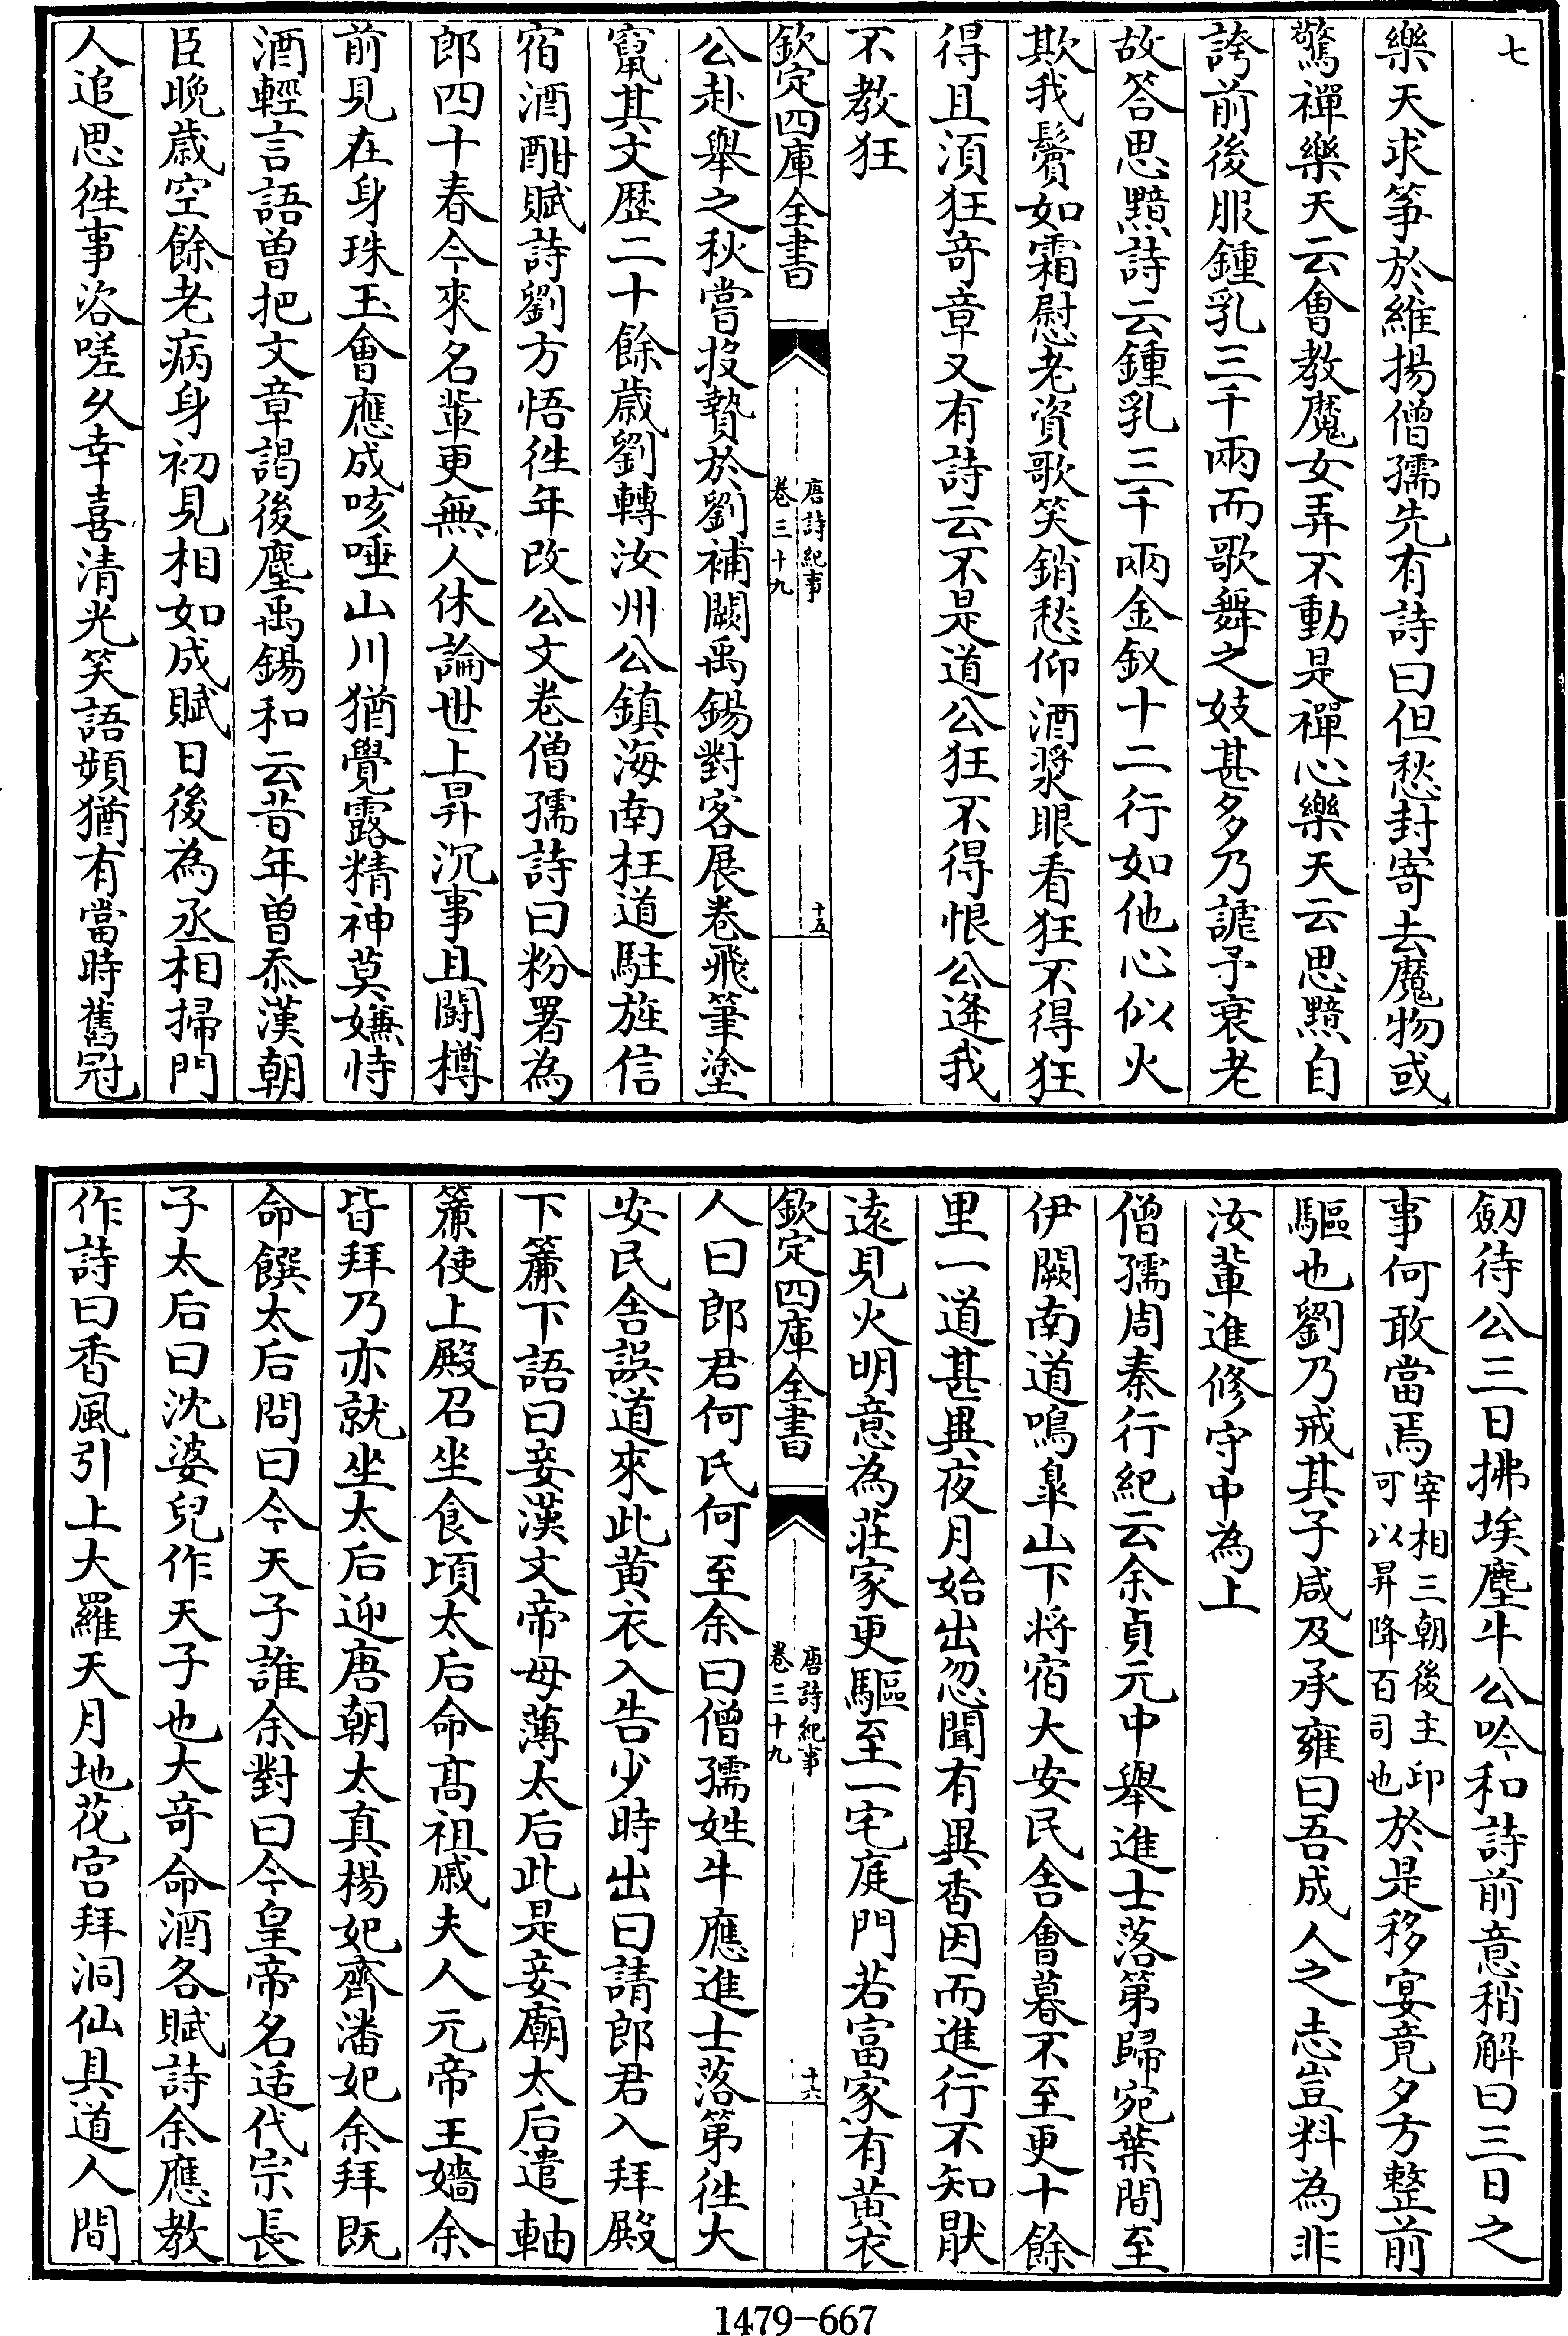 七
樂天求筝於維揚僧孺先有詩曰但愁封寄去魔物或
驚禪樂天云會教魔女弄不動是禪心樂天云思黯自
誇前後服鍾乳三千兩而歌舞之妓甚多乃謔予衰老
故答思黯詩云鍾乳三千兩金釵十二行如他心似火
欺我鬢如霜慰老資歌笑銷愁仰酒漿眼看狂不得狂
得且須狂奇章又有詩云不是道公狂不得恨公逢我
不教狂
欽定四庫全書
唐詩紀事
卷三十九
十五
公赴舉之秋嘗投贄於劉補闕禹錫對客展卷飛筆塗
竄其文歴二十餘歳劉轉汝州公鎮海南枉道駐旌信
宿酒酣賦詩劉方悟徃年改公文卷僧孺詩曰粉署為
郎四十春今來名輩更無人休論世上昇沉事且鬭樽
前見在身珠玉會應成咳唾山川猶覺露精神莫嫌恃
酒輕言語曾把文章謁後塵禹錫和云昔年曾忝漢朝
臣晩歳空餘老病身初見相如成賦日後為丞相掃門
人追思徃事咨嗟乆幸喜清光笑語頻猶有當時舊冠
劒待公三日拂埃塵牛公吟和詩前意稍解曰三日之
事何敢當焉宰相三朝後主印可以昇降百司也於是移宴竟夕方整前
驅也劉乃戒其子咸及承雍曰吾成人之志豈料為非
汝輩進修守中為上
僧孺周秦行紀云余貞元中舉進士落第歸宛葉間至
伊闕南道鳴臯山下將宿大安民舎會暮不至更十餘
里一道甚異夜月始出忽聞有異香因而進行不知猒
逺見火明意為莊家更驅至一宅庭門若富家有黄衣
欽定四庫全書
唐詩紀事
卷三十九
十六
人曰郎君何氏何至余曰僧孺姓牛應進士落第徃大
安民舎誤道來此黄衣入告少時出曰請郎君入拜殿
下簾下語曰妾漢文帝母薄太后此是妾廟太后遣軸
簾使上殿召坐食頃太后命髙祖戚夫人元帝王嬙余
皆拜乃亦就坐太后迎唐朝太真楊妃齊潘妃余拜既
命饌太后問曰今天子誰余對曰今皇帝名适代宗長
子太后曰沈婆兒作天子也大奇命酒各賦詩余應教
作詩曰香風引上大羅天月地花宫拜洞仙具道人間
1479-667